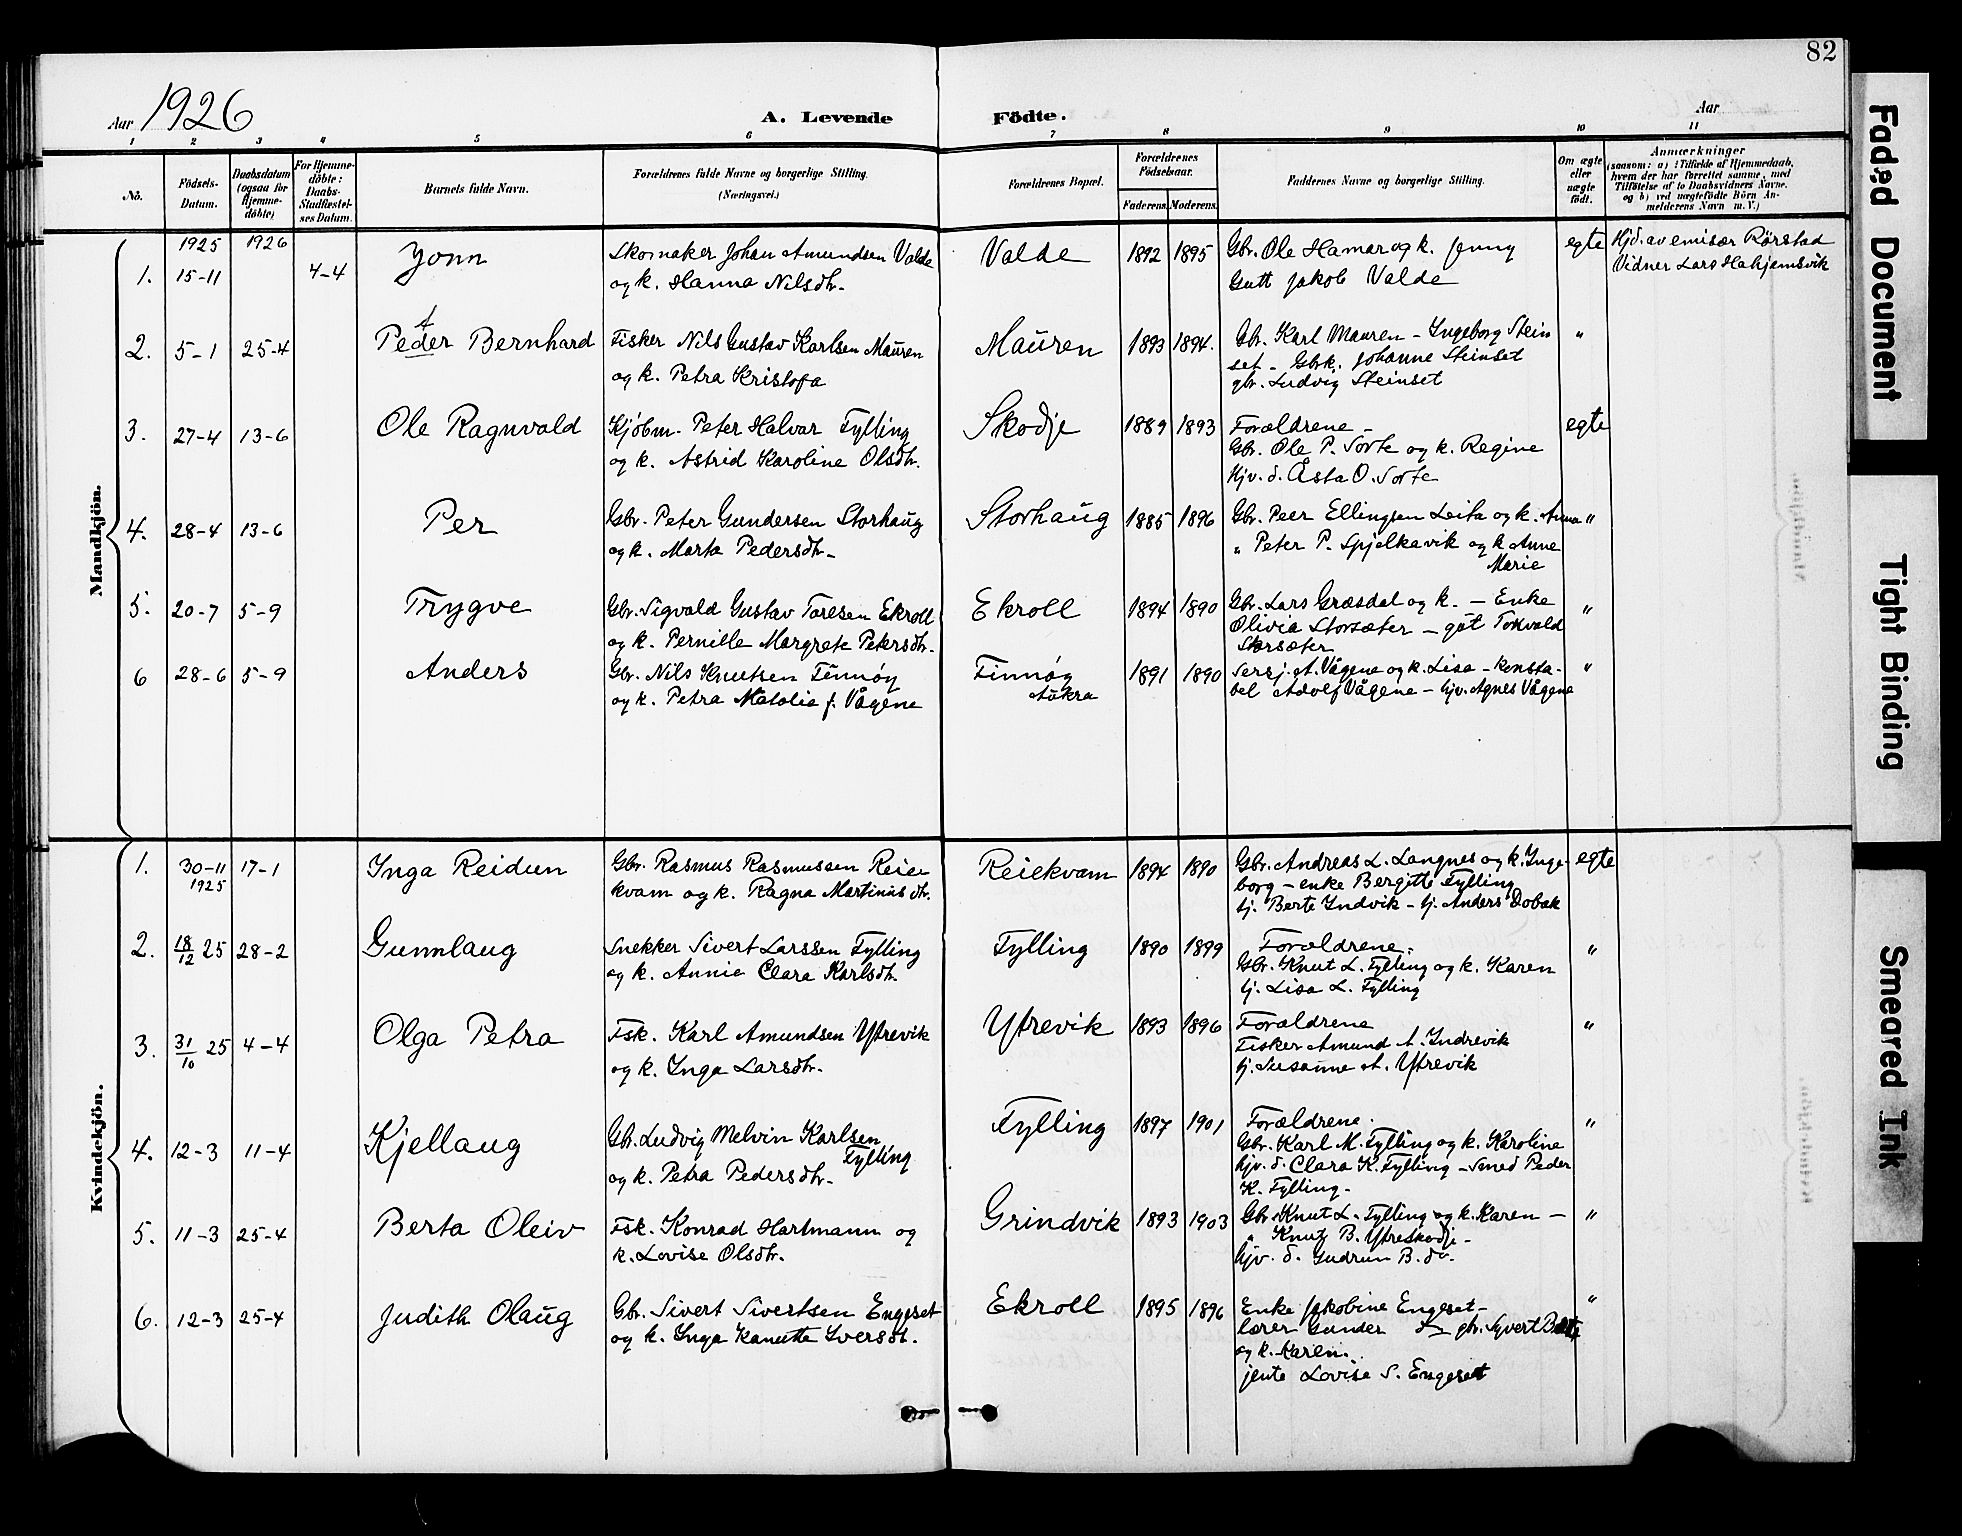 82
Aar 1926
A. Levende Födte.
Aar
1 2 3 4 5 6 7 8 9 10 11
No.
Födsels-Datum.
Daabsdatum (ogsaa for Hjemmedöbte)
For Hjemmedöbte: Daabs-Stadfæstelses Datum.
Barnets fulde Navn.
Forældrenes fulde Navne og borgerlige Stilling. (Næringsvei.)
Forældrenes Bopæl.
Forældrenes Födselsaar.
Faderens. Moderens.
Faddernes Navne og borgerlige Stilling.
Om ægte eller uægte födt.
Anmærkninger
(saasom: a) i Tilfælde af Hjemmedaab, hvem der har forrettet samme, med Tilföielse af to Daabsvidners Navne. og b) ved uægtefödte Börn Anmelderens Navn m. V.)
Mandkjön.
1925 1926
1. 15-11 4-4 Jonn
Skomaker Johan Amundsen Valde
og k. Hanna Nilsdtr.
Valde 1892 1895
Gbr. Ole Hamar og k. Jenny
Gutt Jakob Valde
egte
Hjd. av emisær Rörstad
Vidner Lars Hahjemsvik
2. 5-1 25-4 Peder Bernhard
t
Fisker Nils Gustav Karlsen Mauren
og k. Petra Kristofa
Mauren 1893 1894.
Gbr. Karl Mauren - Ingeborg Stein
set - Gbrk. Johanne Steinset
gbr. Ludvig Steinset
"
3. 27-4 13-6 Ole Ragnvald
Kjöbm. Peter Halvar Fylling
og k. Astrid Karoline Olsdtr.
Skodje 1889 1893
Forældrene -
Gbr. Ole P. Sorte og k. Regine
Hjv. d. Åsta O. Sorte
egte
4. 28-4 13-6 Per
Gbr. Peter Gundersen Storhaug
og k. Marta Pedersdtr.
Storhaug 1885 1896
Gbr. Peer Ellingsen Leita og k. Anna
" Peter P. Spjelkavik og k Anne
Marie
"
5. 20-7 5-9 Trygve
Gbr. Sigvald Gustav Toresen Ekroll
og k. Pernille Margrete Petersdtr.
Ekroll 1894 1890
Gbr. Lars Græsdal og k. - Enke
Olivia Storsæter - gut Torvald
Storsæter
"
6 28-6 5-9 Anders
Gbr. Nils Knutsen Finnöy
og k. Petra Natalia f. Vågene
Finnøy
Aukra
1891 1890
Sersj. A. Vågene og k. Lisa - konsta-
bel Adolf Vågene - hjv. Agnes Vågene
"
Kvindekjön.
1. 30-11 1925 17-1 Inga Reidun
Gbr. Rasmus Rasmussen Reiek
kvam og k. Ragna Martinusdtr.
Reiekvam 1894 1890
Gbr. Andreas L. Langnes og k. Inge-
borg - enke Bergitte Fylling
tj. Berte Indvik - tj. Anders Dobak
egte
2. 18/12 25 28-2 Gunnlaug
Snekker Sivert Larssen Fylling
og k. Annie Clara Karlsdtr.
Fylling 1890 1899
Forældrene.
Gbr. Knut L. Fylling og k. Karen
tj. Lisa L. Fylling
"
3. 31/10 25 4-4 Olga Petra
Fsk. Karl Amundsen Ytrevik
og k. Inga Larsdtr.
Ytrevik 1893 1896
Forældrene
Fisker Amund A. Indrevik
tj. Susanne A. Ytrevik
"
4. 12-3 11-4 Kjellaug
Gbr. Ludvig Melvin Karlsen
Fylling
og k. Petra Pedersdtr.
Fylling 1897 1901
Forældrene.
Gbr. Karl M. Fylling og k. Karoline
hjv. d. Clara K. Fylling - Smed Peder
K. Fylling.
"
5. 11-3 25-4 Berta Oleiv
Fsk. Konrad Hartmann og
k. Lovise Olsdtr.
Grindvik 1893 1903
Gbr. Knut L. Fylling og k. Karen -
" Knut B. Ytreskodje -
hjv. d. Gudrun B. do.
"
6. 12-3 25-4 Judith Olaug
Gbr. Sivert Sivertsen Engeset
og k. Inga Kanutte Iversdt.
Ekroll 1895 1896
Enke Jakobine Engeset -
lærer Gunder do gbr. Syvert
og k. Karen.
jente Lovise S. Engeset
"
Faded Document
Tight Binding
Smeared Ink